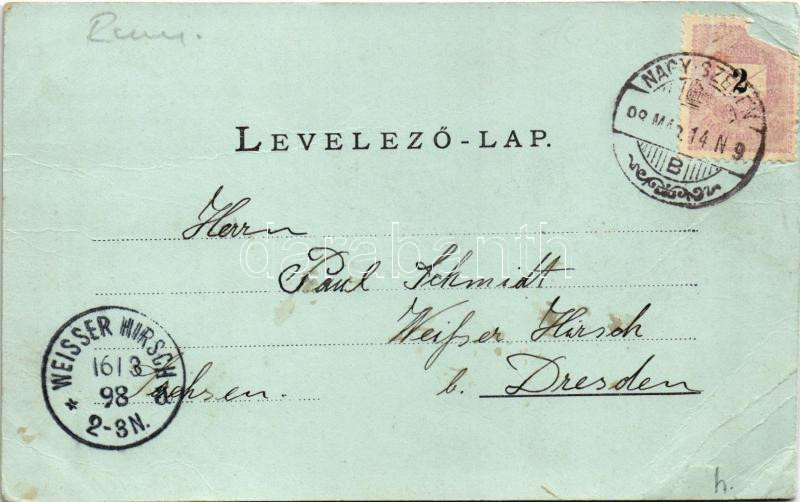 2
NAGY-SZEBEN
98 MÁR 14 N 9
B
LEVELEZŐ-LAP.
Herrn
darabanth
Paul Schmidt
Weißer Hirsch
b. Dresden
Sachsen.
WEISSER HIRSCH
16/3
98
2-3N.
h.